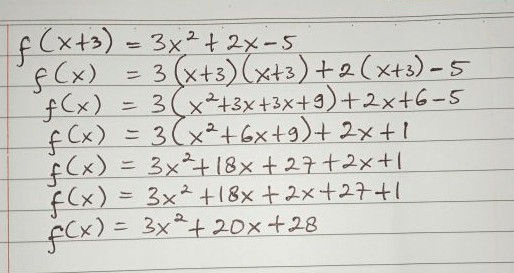 f(x+3) = 3x²+2x-5
f(x) = 3(x+3)(x+3)+2(x+3)-5
f(x) = 3(x²+3x+3x+9)+2x+6-5
f(x) = 3(x²+6x+9)+2x+1
f(x) = 3x²+18x+27+2x+1
f(x) = 3x²+18x+2x+27+1
f(x) = 3x²+20x+28